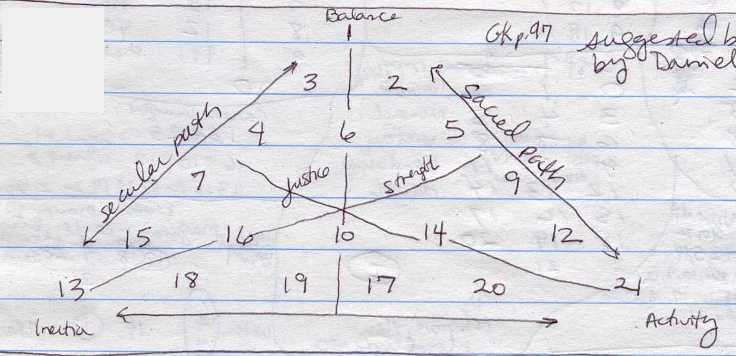 Balance
1
GK p.97 suggested b
by Daniel
3 2
secular path
sacred path
4 6 5
7 Justice strength 9
15 16 10 14 12
13 18 19 17 20 21
Inertia Activity